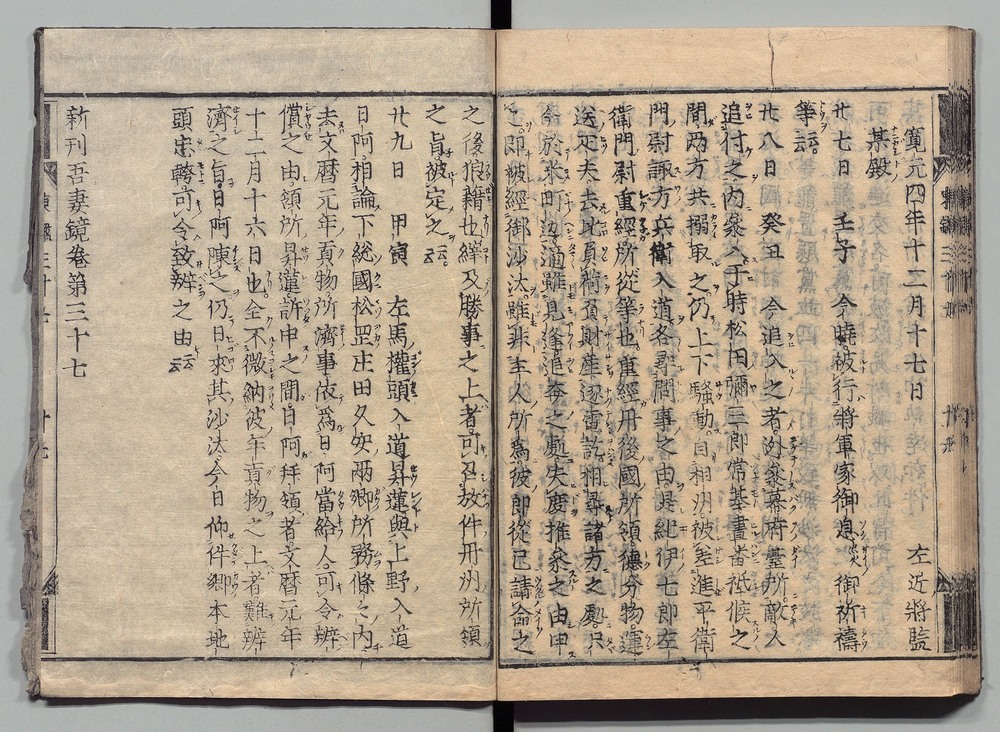 寛元四年十二月十七日　左近將監
某殿
廿七日　壬子　今曉被行將軍家御息災御祈禱
等云云
廿八日　癸丑　今追入之者迯參幕府臺所敵人
追付之内參入于時松田彌三郎常基晝番祗候之
間兩方共搦取之仍上下騷動自相州被差進平衛
門尉諏方兵衛入道各尋問事之由是紀伊七郎左
衛門尉重經所從等也重經丹後國所領德分物運
送疋夫去比負荷預財産逐電訖相尋諸方之處只
今於米町邊適雖見逢追奔之處失度推參之由申
之即被經御沙汰雖非主人所爲彼郎從已請命之
之後狼藉也縡及勝事之上者可召放件丹州所領
之旨被定之云云
廿九日　甲寅　左馬權頭入道昇蓮與上野入道
日阿相論下総國松罡庄田久安兩鄕所務條々内
去文暦元年貢物所濟事依爲日阿當給人可令辨
償之由領所昇蓮訴申之間日阿拜領者文暦元年
十二月十六日也全不徴納彼年貢物之上者難辨
濟之旨日阿陳之仍日來其沙汰今日仰件鄕本地
頭忠幹可令致辨之由云云
新刊吾妻鏡卷第三十七